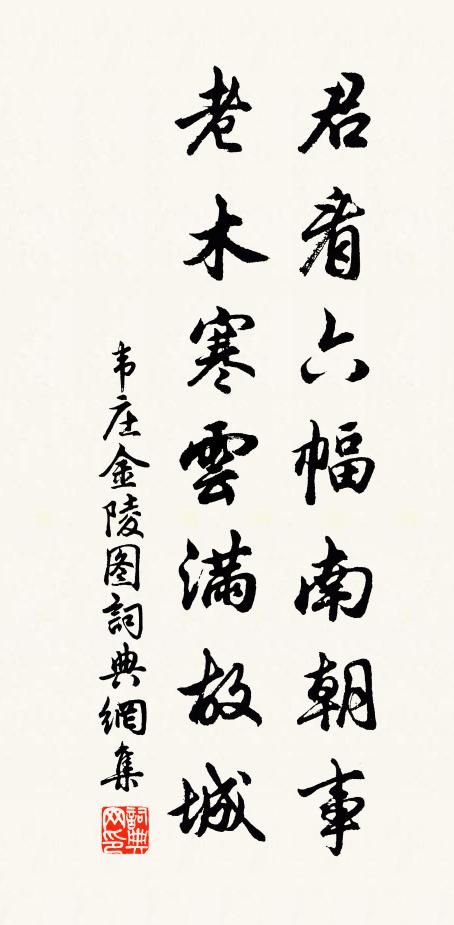 君看六幅南朝事
老木寒雲满故城
韦庄金陵图詞典網集
詞典网印